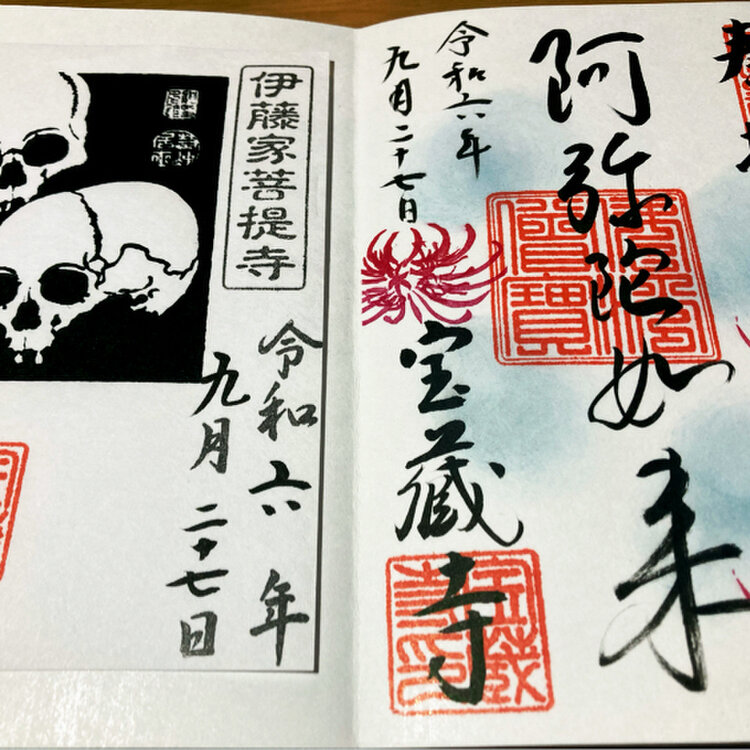 阿弥陀如来
佛法僧寶
令和六年
九月二十七日
宝蔵寺
宝蔵寺印
伊藤家菩提寺
令和六年
九月二十七日